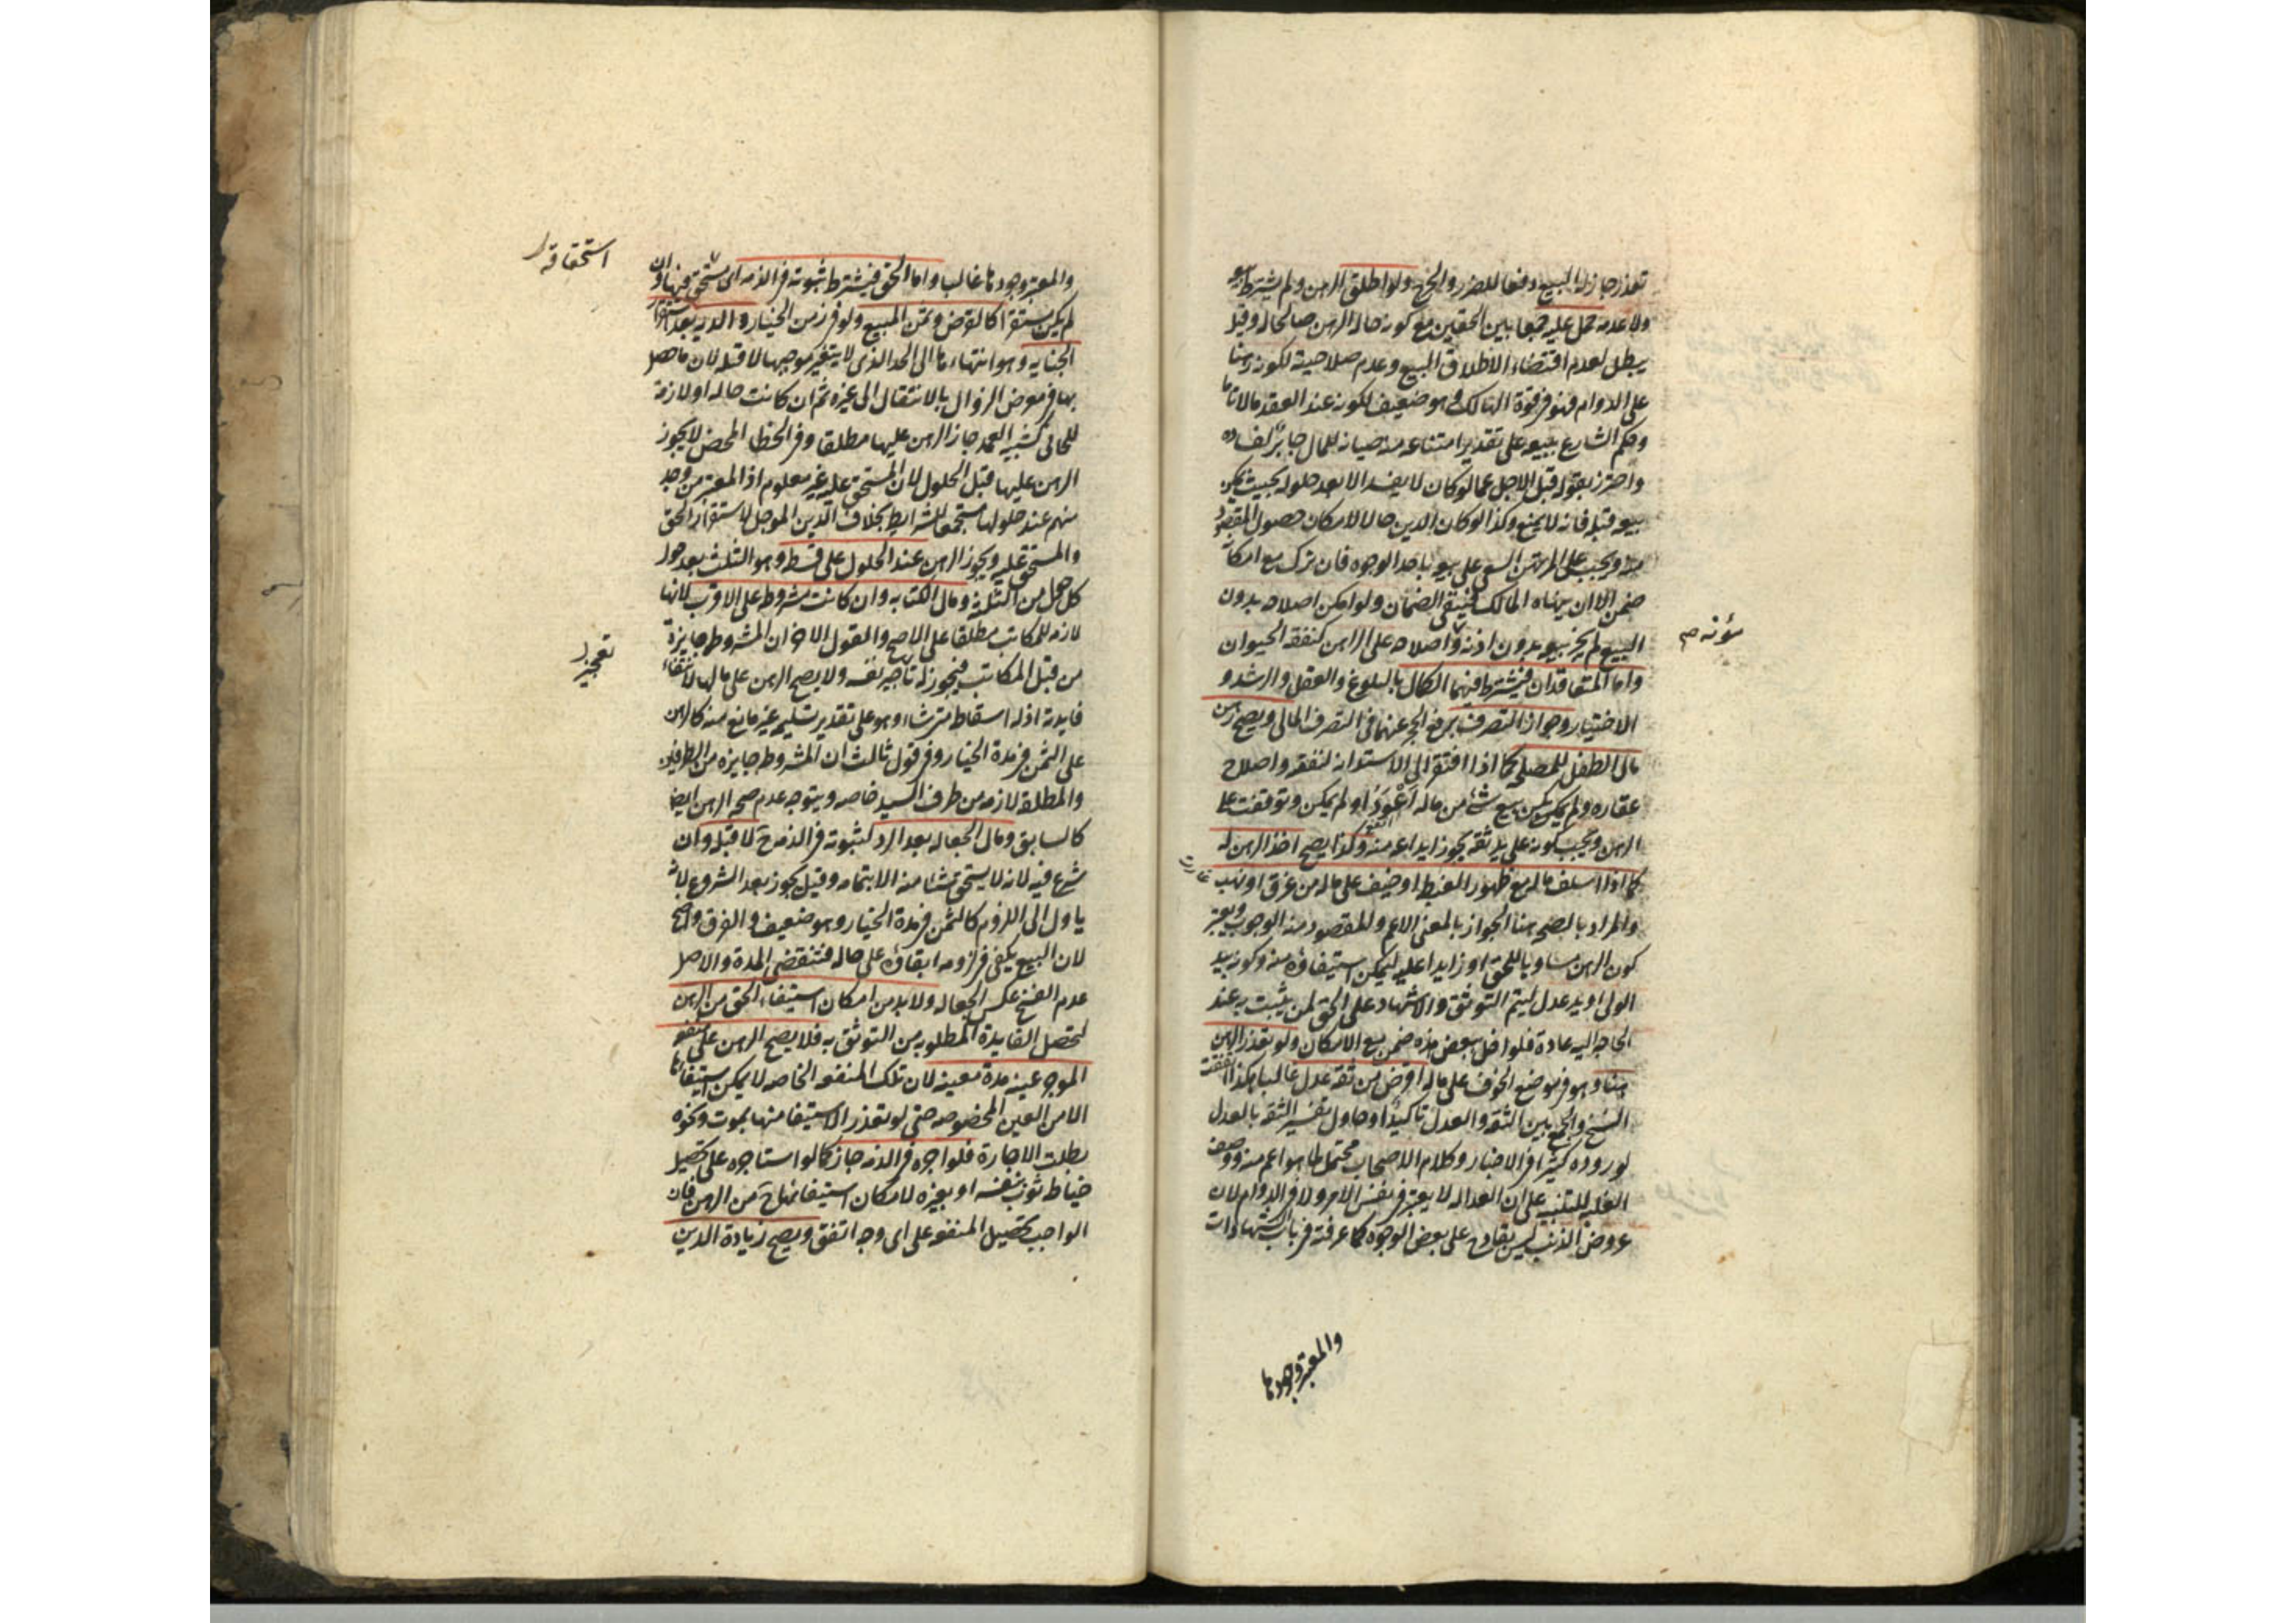 تعذر جاز له البيع دفعا للضرر والحرج ولو اطلق الرهن ولم يشترط بيعه
ولا عدمه حمل عليه جمعا بين الحقين مع كونه حالة الرهن صالحا له وقيل
يبطل لعدم اقتضاء الاطلاق البيع وعدم صلاحيته لكونه رهنا
على الدوام فهو في قوة الهالك وهو ضعيف لكونه عند العقد مالا تاما
وحكم الشارع ببيعه على تقدير امتناعه منه صيانة للمال جابر لفساده
واحترز بقوله قبل الاجل عما لو كان لا يفسد الا بعد حلوله بحيث يمكن
بيعه قبله فانه لا يمنع وكذا لو كان الدين حالا لامكان حصول المقصود
منه ويجب على المرتهن السعي على بيعه باحد الوجوه فان ترك مع امكانه
ضمن الا ان ينهاه المالك فينتفي الضمان ولو امكن اصلاحه بدون
البيع لم يجز بيعه بدون اذنه واصلاحه على الراهن كنفقة الحيوان
مؤنه صح
واما المتعاقدان فيشترط فيهما الكمال بالبلوغ والعقل والرشد و
الاختيار وجواز التصرف برفع الحجر عنهما في التصرف المالي ويصح رهن
مال الطفل للمصلحة كما اذا افتقر الى الاستدانة لنفقته واصلاح
عقاره ولم يكن بيع شئ من ماله اعود او لم يمكن وتوقفت على
الرهن ويجب كونه على يد ثقة يجوز ايداعه منه وكذا يصح اخذ الرهن له
كما اذا اسلف ماله مع ظهور الغبطة او خيف على ماله من غرق او نهب
والمراد بالصحة هنا الجواز بالمعنى الاعم والمقصود منه الوجوب ويعتبر
كون الرهن مساويا للحق او زايدا عليه ليمكن استيفاؤه منه وكونه بيد
الولي او يد عدل ليتم التوثق والاشهاد على الحق لمن يثبت به عند
الحاجة اليه عادة فلو اخل ببعض هذه ضمن مع الامكان ولو تعذر الرهن
هنا وهو في موضع الخوف على ماله اقرض من ثقة عدل غالبا هكذا اتفقت
النسخ والجمع بين الثقة والعدل تاكيدا او حاول تفسير الثقة بالعدل
لوروده كثيرا في الاخبار وكلام الاصحاب محتمل لما هو اعم منه ووصف
الغلبة للتنبيه على ان العدالة لا يعتبر في نفس الامر ولا في الدوام لان
عروض الذنب ليس بقادح على بعض الوجوه كما عرفته في باب الشهادات
والمعتبر وجودها
والمعتبر وجودها غالبا واما الحق فيشترط ثبوته في الذمة اى مستحق فيها وان
استحقاقه
لم يكن مستقرا كالقرض وثمن المبيع ولو في زمن الخيار والدية بعد استقرار
الجناية وهو انتهاء ها الى الحد الذى لا يتغير موجبها لا قبله لان ما حصل
بها في معرض الزوال بالانتقال الى غيره ثم ان كانت حاله او لازمة
للجاني كشبيه العمد جاز الرهن عليها مطلقا وفي الخطا المحض لا يجوز
الرهن عليها قبل الحلول لان المستحق عليه غير معلوم اذ المعتبر من وجد
منهم عند حلولها مستجمعا للشرايط بخلاف الدين الموجل لاستقرار الحق
والمستحق عليه ويجوز الرهن عند الحلول على قسط وهو الثلث بعد حول
كل حول من الثلثة ومال الكتابة وان كانت مشروطة على الاقرب لانها
لازمة للمكاتب مطلقا على الاصح والقول الاخر ان المشروطة جايزة
من قبل المكاتب فيجوز له تعجيز نفسه ولا يصح الرهن على مالها لانتفاء
تعجيز
فايدته اذ له اسقاطه متى شاء وهو على تقدير تسليمه غير مانع منه كالرهن
على الثمن في مدة الخيار وفي قول ثالث ان المشروطة جايزة من الطرفين
والمطلقة لازمة من طرف السيد خاصة ويتوجه عدم صحة الرهن ايضا
كالسابق ومال الجعالة بعد الرد لثبوته في الذمة ح لا قبله وان
شرع فيه لانه لا يستحق شيئا منه الا بتمامه وقيل يجوز بعد الشروع لانه
ياول الى اللزوم كالثمن في مدة الخيار وهو ضعيف والفرق واضح
لان البيع يكفي في لزومه ابقاؤه على حاله فتنقضي المدة والاصل
عدم الفسخ عكس الجعالة ولا بد من امكان استيفاء الحق من الرهن
لتحصل الفايدة المطلوبة من التوثق به فلا يصح الرهن على منفعة
الموجر عينه مدة معينة لان تلك المنفعة الخاصة لا يمكن استيفاؤها
الا من العين المخصوصة حتى لو تعذر الاستيفا منها بموت ونحوه
بطلت الاجارة فلو اجره في الذمة جاز كما لو استاجره على تحصيل
خياطة ثوب بنفسه او بغيره لامكان استيفائها ح من الرهن فان
الواجب تحصيل المنفعة على اى وجه اتفق ويصح زيادة الدين